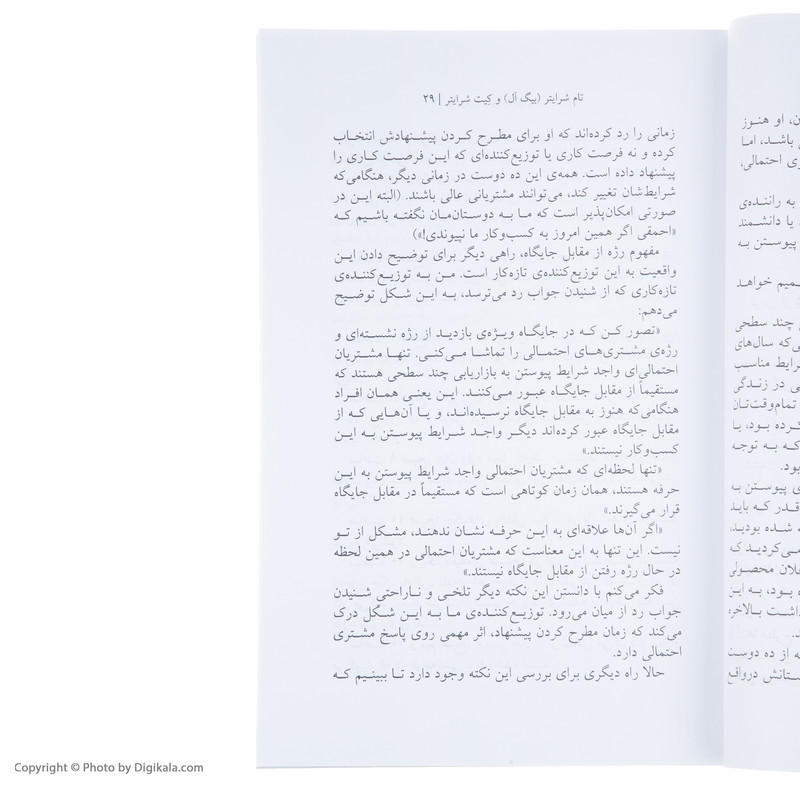 تام شرایتر (بیگ آل) و کیت شرایتر | ۲۹
زمانی را رد کرده‌اند که او برای مطرح کردن پیشنهادش انتخاب
کرده و نه فرصت کاری یا توزیع‌کننده‌ای که این فرصت کاری را
پیشنهاد داده است. همه‌ی این ده دوست در زمانی دیگر، هنگامی‌که
شرایط‌شان تغییر کند، می‌توانند مشتریانی عالی باشند. (البته این در
صورتی امکان‌پذیر است که ما به دوستان‌مان نگفته باشیم که
«احمقی اگر همین امروز به کسب‌وکار ما نپیوندی!»)
مفهوم رژه از مقابل جایگاه، راهی دیگر برای توضیح دادن این
واقعیت به این توزیع‌کننده‌ی تازه‌کار است. من به توزیع‌کننده‌ی
تازه‌کاری که از شنیدن جواب رد می‌ترسد، به این شکل توضیح
می‌دهم:
«تصور کن که در جایگاه ویژه‌ی بازدید از رژه نشسته‌ای و
رژه‌ی مشتری‌های احتمالی را تماشا می‌کنی. تنها مشتریان
احتمالی‌ای واجد شرایط پیوستن به بازاریابی چند سطحی هستند که
مستقیماً از مقابل جایگاه عبور می‌کنند. این یعنی همان افراد
هنگامی‌که هنوز به مقابل جایگاه نرسیده‌اند، و یا آن‌هایی که از
مقابل جایگاه عبور کرده‌اند دیگر واجد شرایط پیوستن به این
کسب‌وکار نیستند.»
«تنها لحظه‌ای که مشتریان احتمالی واجد شرایط پیوستن به این
حرفه هستند، همان زمان کوتاهی است که مستقیماً در مقابل جایگاه
قرار می‌گیرند.»
«اگر آن‌ها علاقه‌ای به این حرفه نشان ندهند، مشکل از تو
نیست. این تنها به این معناست که مشتریان احتمالی در همین لحظه
در حال رژه رفتن از مقابل جایگاه نیستند.»
فکر می‌کنم با دانستن این نکته دیگر تلخی و ناراحتی شنیدن
جواب رد از میان می‌رود. توزیع‌کننده‌ی ما به این شکل درک
می‌کند که زمان مطرح کردن پیشنهاد، اثر مهمی روی پاسخ مشتری
احتمالی دارد.
حالا راه دیگری برای بررسی این نکته وجود دارد تا ببینیم که
او هنوز
باشد، اما
احتمالی،
به راننده‌ی
یا دانشمند
پیوستن به
خواهد
چند سطحی
که سال‌های
شرایط مناسب
در زندگی
تمام‌وقت‌تان
کرده بود، با
که به توجه
بود.
پیوستن به
قدر که باید
شده بودید،
می‌کردید که
فلان محصولی
بود، به این
داشت بالاخره
از ده دوست
درواقع
Copyright © Photo by Digikala.com